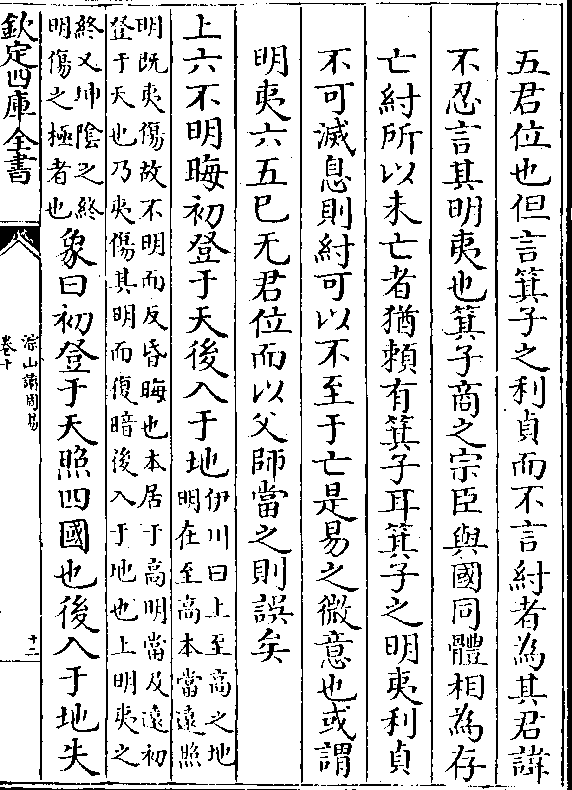 五君位也但言箕子之利貞而不言紂者為其君諱
不忍言其明夷也箕子商之宗臣與國同體相為存
亡紂所以未亡者猶頼有箕子耳箕子之明夷利貞
不可滅息則紂可以不至于亡是易之微意也或謂
明夷六五已无君位而以父師當之則誤矣
上六不明晦初登于天後入于地伊川曰上至高之地
明在至高本當遠照
明既夷傷故不明而反昏晦也本居于高明當及遠初
登于天也乃夷傷其明而復暗後入于地也上明夷之
終又坤陰之終
明傷之極者也象曰初登于天照四國也後入于地失
欽定四庫全書
淙山讀周易
卷十
十二